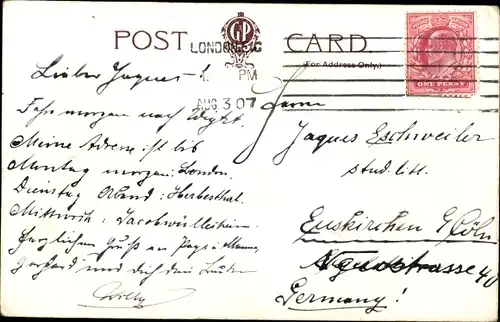 POST CARD.
GP
(For Address Only.)
LONDON
PM
AUG 3 07
ONE PENNY
Lieber Jaques!
Fahre morgen nach
Meine Adresse ist bis
Montag morgen: London.
Dienstag Abend: Herbesthal.
Mittwoch: Jacobwüllesheim.
Herzlichen Gruß an Papa & Mama,
Gerhard und dich dein
Willy
Herrn
Jaques Eschweiler
stud. litt.
Euskirchen b/Cöln
40
Germany!